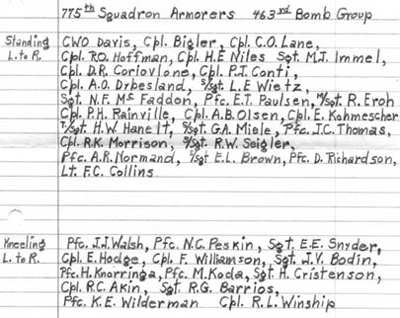 775th Squadron Armorers 463rd Bomb Group
Standing CWO Davis, Cpl. Bigler, Cpl. C.O. Lane,
L. to R. Cpl. R.O. Hoffman, Cpl. H.E Niles Sgt. M.J. Immel,
Cpl. D.R. Coriovlone, Cpl. P.J. Conti,
Cpl. A.O. Drbesland, S/Sgt. L.E Wietz,
Sgt. N.F. Mc Faddon, Pfc. E.T. Paulsen, M/Sgt. R. Eroh
Cpl. P.H. Rainville, Cpl. A.B. Olsen, Cpl. E. Kohmescher
T/Sgt. H.W. Hanelt, S/Sgt. G.A. Miele, Pfc. J.C. Thomas,
Cpl. R.K. Morrison, S/Sgt. R.W. Seigler,
Pfc. A.R. Normand, T/Sgt E.L. Brown, Pfc. D. Richardson,
Lt. F.C. Collins
Kneeling Pfc. J.J. Walsh, Pfc. N.C. Peskin, Sgt. E.E. Snyder,
L. to R. Cpl. E. Hodge, Cpl. F. Williamson, Sgt. J.V. Bodin,
Pfc. H. Knorringa, Pfc. M. Koda, Sgt. H. Cristenson,
Cpl. R.C. Akin, Sgt. R.G. Barrios,
Pfc. K.E. Wilderman Cpl. R.L. Winship